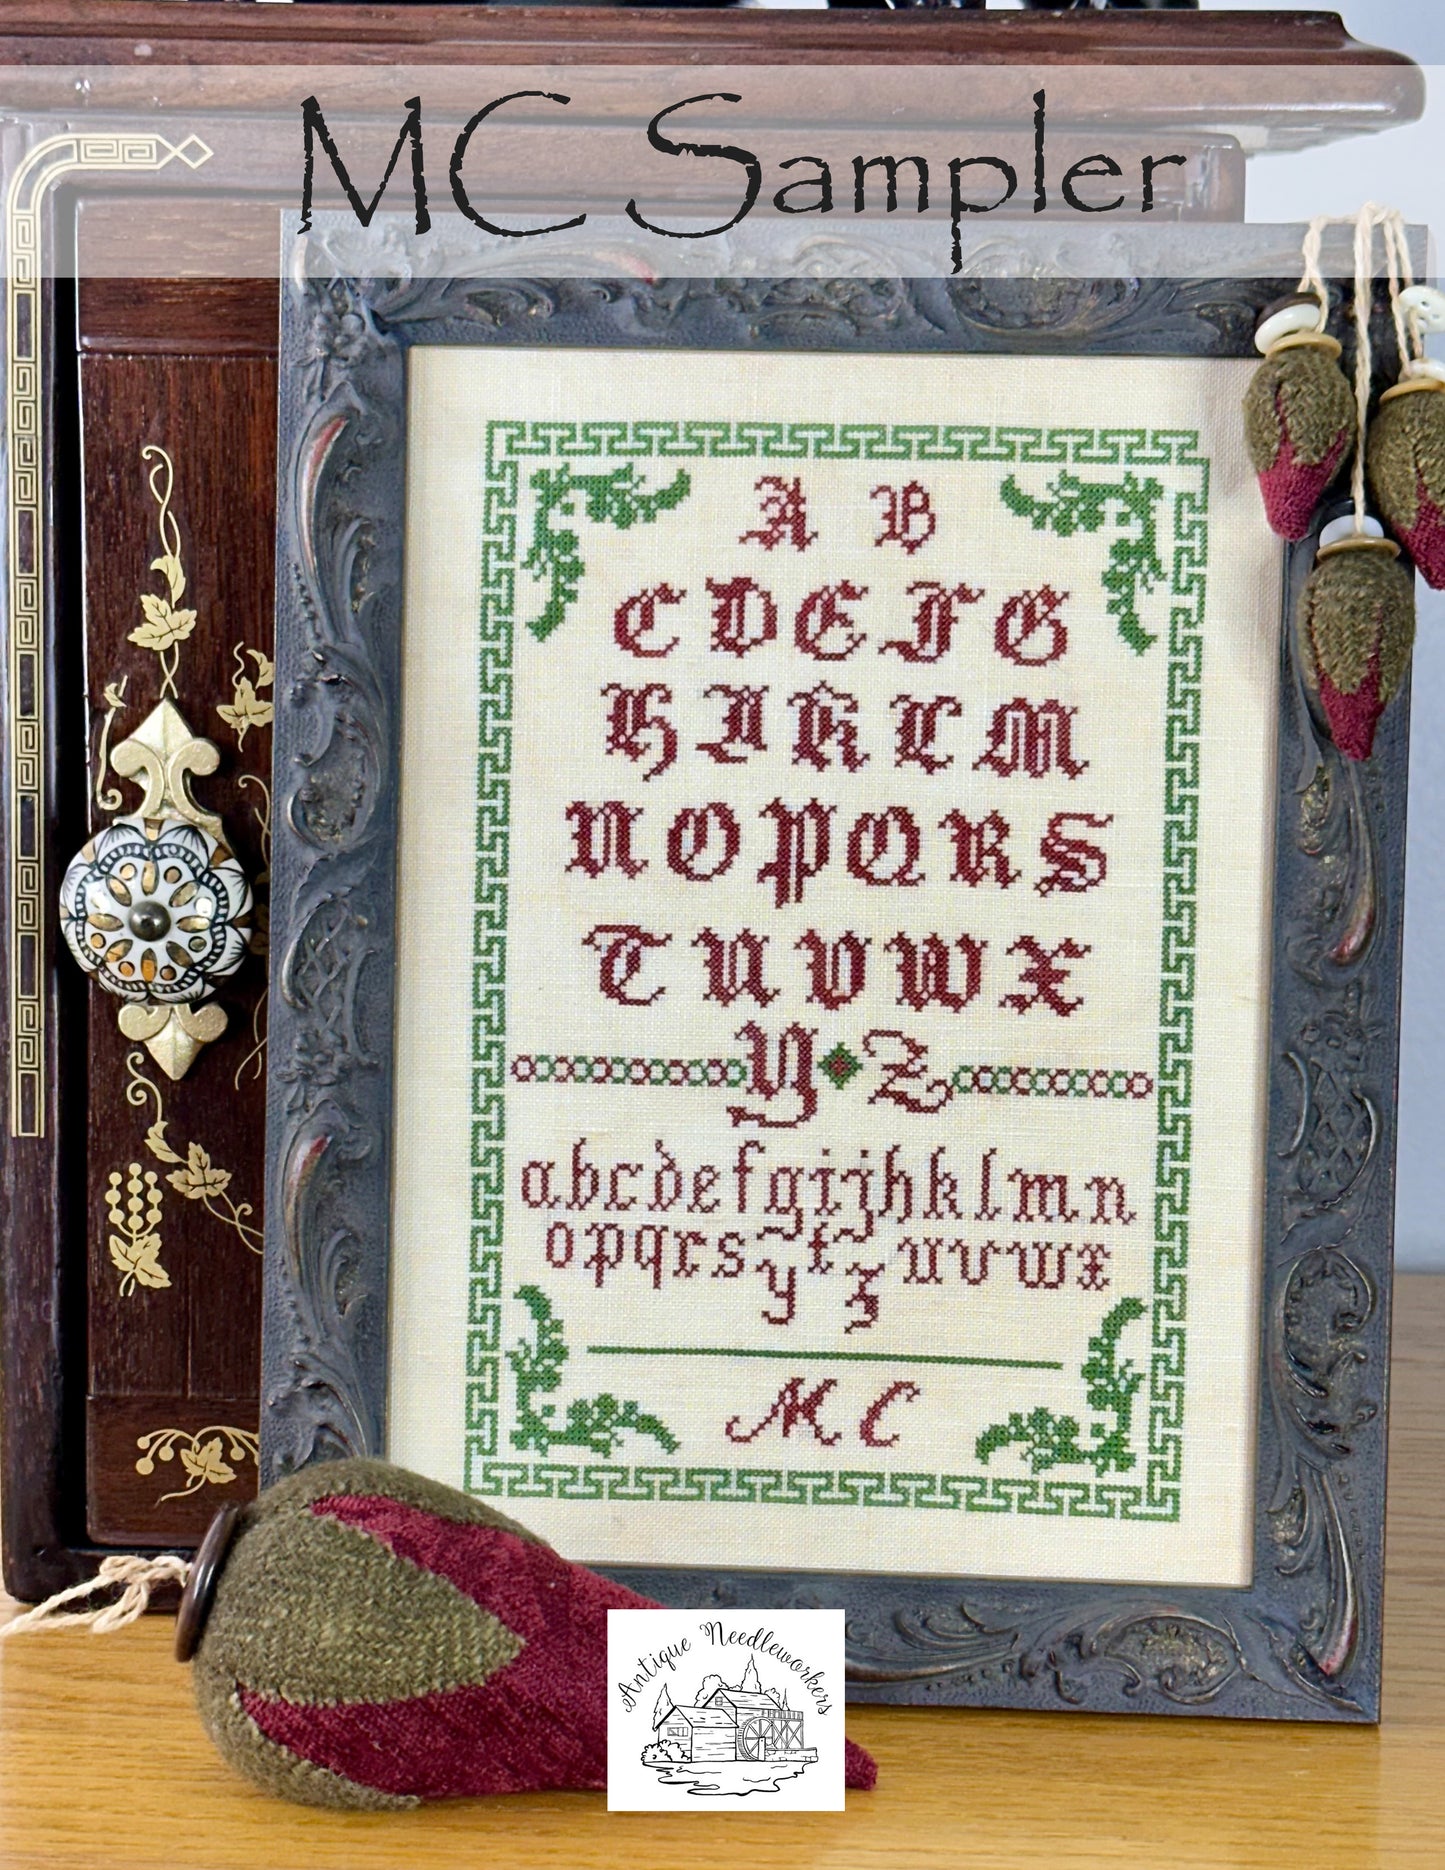 MC Sampler
A B
C D E F G
H I K L M
N O P Q R S
T U V W X
Y Z
abcdefgijhklmn
opqrsytzuvwx
MC
Antique Needleworkers